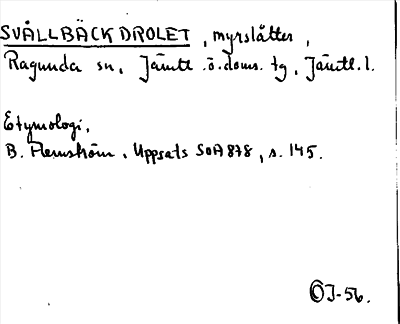 SVÅLLBÄCKDROLET, myrslåtter,
Ragunda sn, Jämtl. ö. doms. tg, Jämtl. l.
Etymologi,
B. Flemström, Uppsats SOA 878, s. 145.
ÖJ-56.